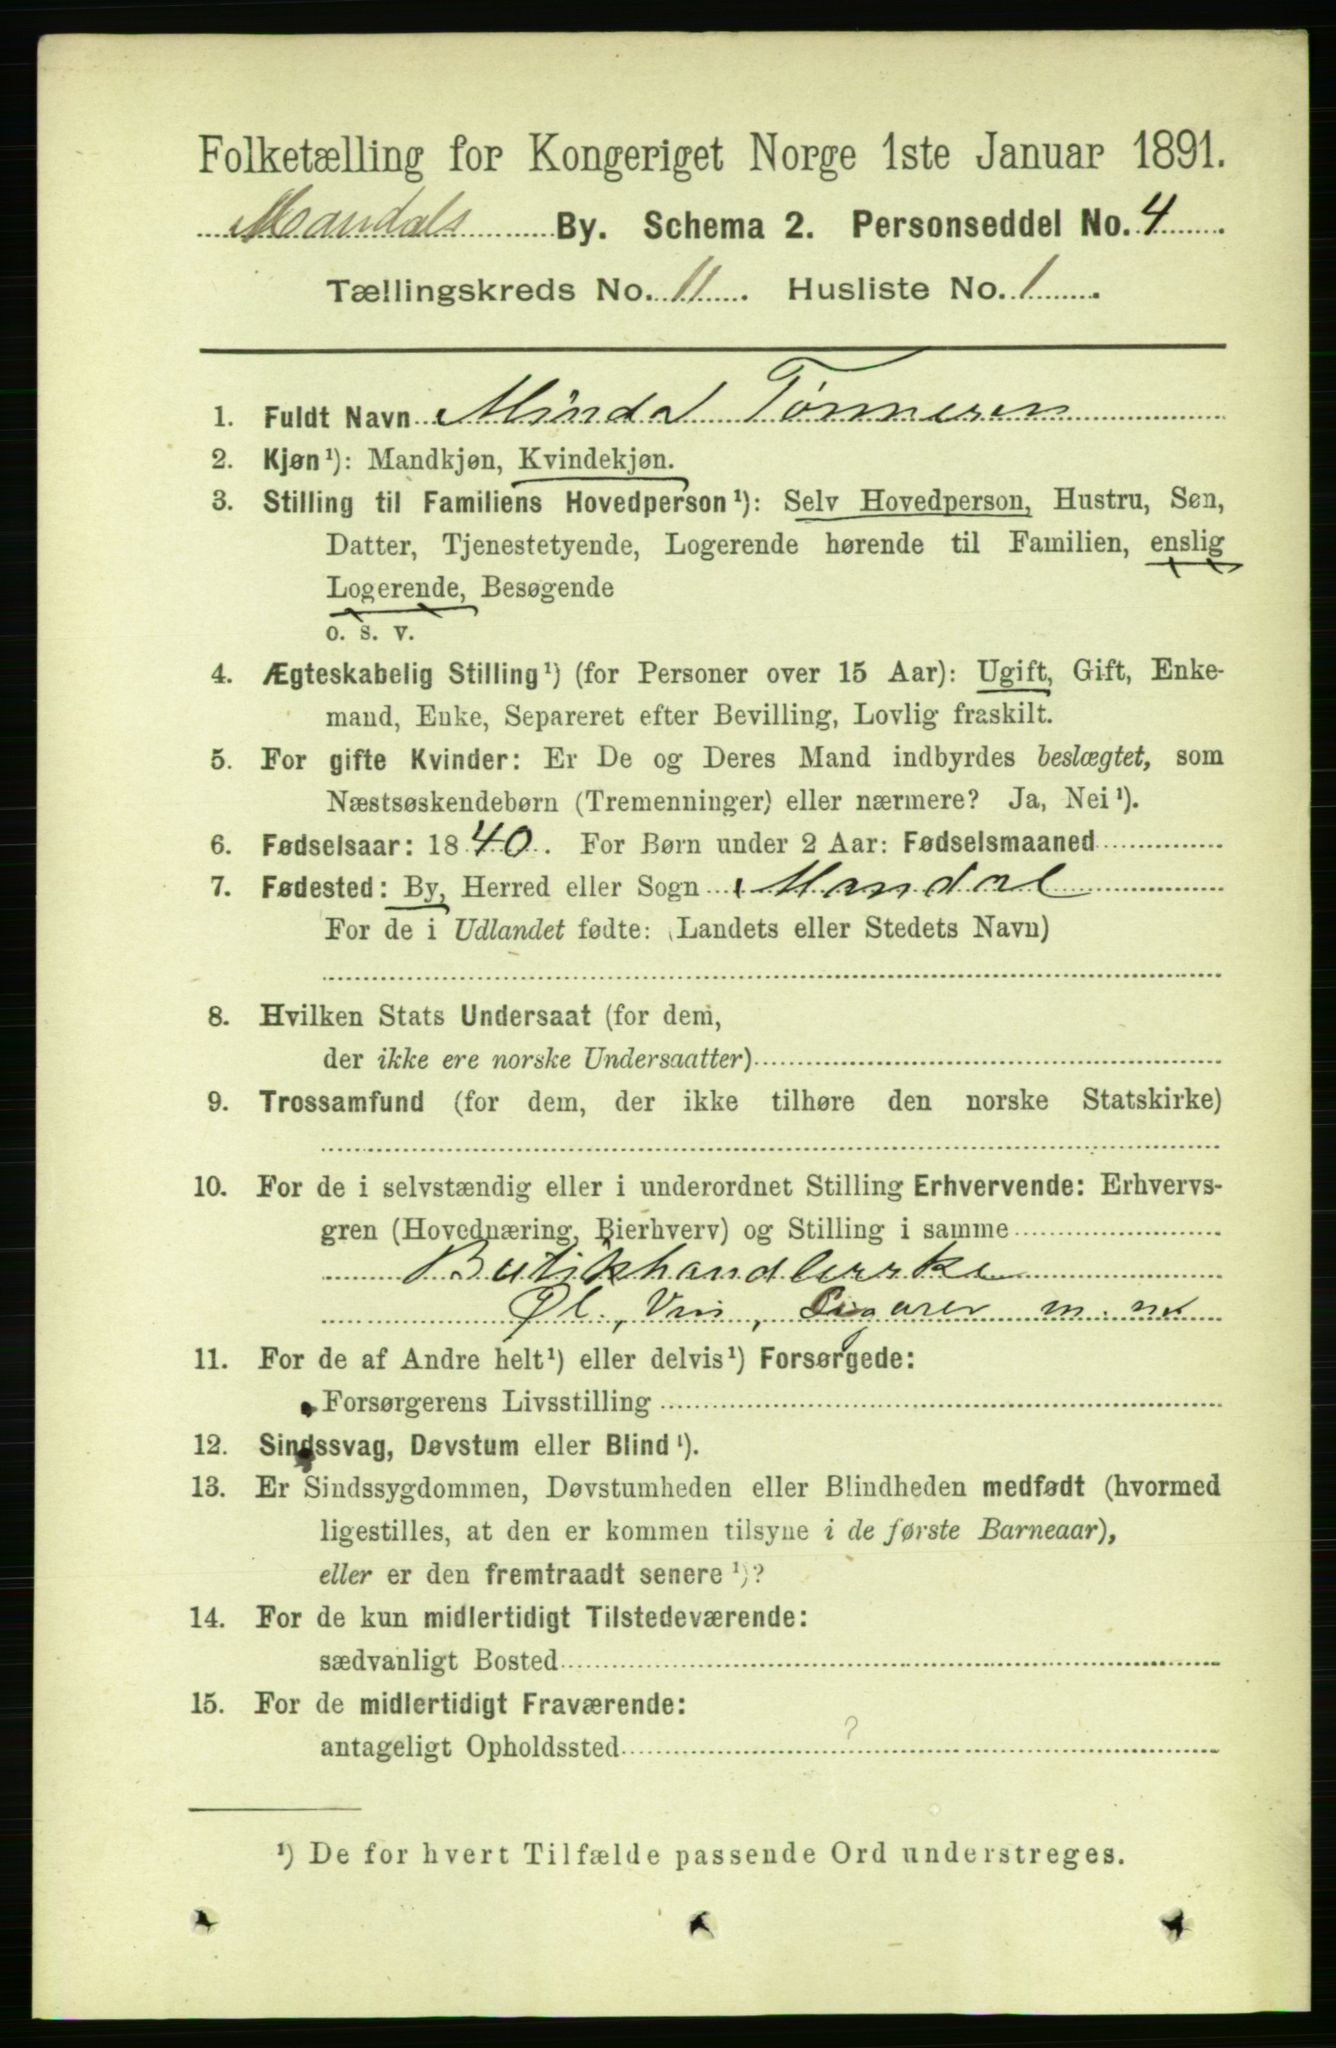 Folketælling for Kongeriget Norge 1ste Januar 1891.
Mandals By. Schema 2. Personseddel No. 4.
Tællingskreds No. 11. Husliste No. 1.
1. Fuldt Navn Minda Tønnesen
2. Kjøn¹): Mandkjøn, Kvindekjøn.
3. Stilling til Familiens Hovedperson¹): Selv Hovedperson, Hustru, Søn,
Datter, Tjenestetyende, Logerende hørende til Familien, enslig
Logerende, Besøgende
o. s. v.
4. Ægteskabelig Stilling¹) (for Personer over 15 Aar): Ugift, Gift, Enke-
mand, Enke, Separeret efter Bevilling, Lovlig fraskilt.
5. For gifte Kvinder: Er De og Deres Mand indbyrdes beslægtet, som
Næstsøskendebørn (Tremenninger) eller nærmere? Ja, Nei¹).
6. Fødselsaar: 1840. For Børn under 2 Aar: Fødselsmaaned
7. Fødested: By, Herred eller Sogn Mandal
For de i Udlandet fødte: (Landets eller Stedets Navn)
8. Hvilken Stats Undersaat (for dem,
der ikke ere norske Undersaatter)
9. Trossamfund (for dem, der ikke tilhøre den norske Statskirke)
10. For de i selvstændig eller i underordnet Stilling Erhvervende: Erhvervs-
gren (Hovednæring, Bierhverv) og Stilling i samme
Butikhandlerske
Øl, Vin, Sigarer m. m
11. For de af Andre helt¹) eller delvis¹) Forsørgede:
Forsørgerens Livsstilling
12. Sindssvag, Døvstum eller Blind¹).
13. Er Sindssygdommen, Døvstumheden eller Blindheden medfødt (hvormed
ligestilles, at den er kommen tilsyne i de første Barneaar),
eller er den fremtraadt senere¹)?
14. For de kun midlertidigt Tilstedeværende:
sædvanligt Bosted
15. For de midlertidigt Fraværende:
antageligt Opholdssted ?
¹) De for hvert Tilfælde passende Ord understreges.